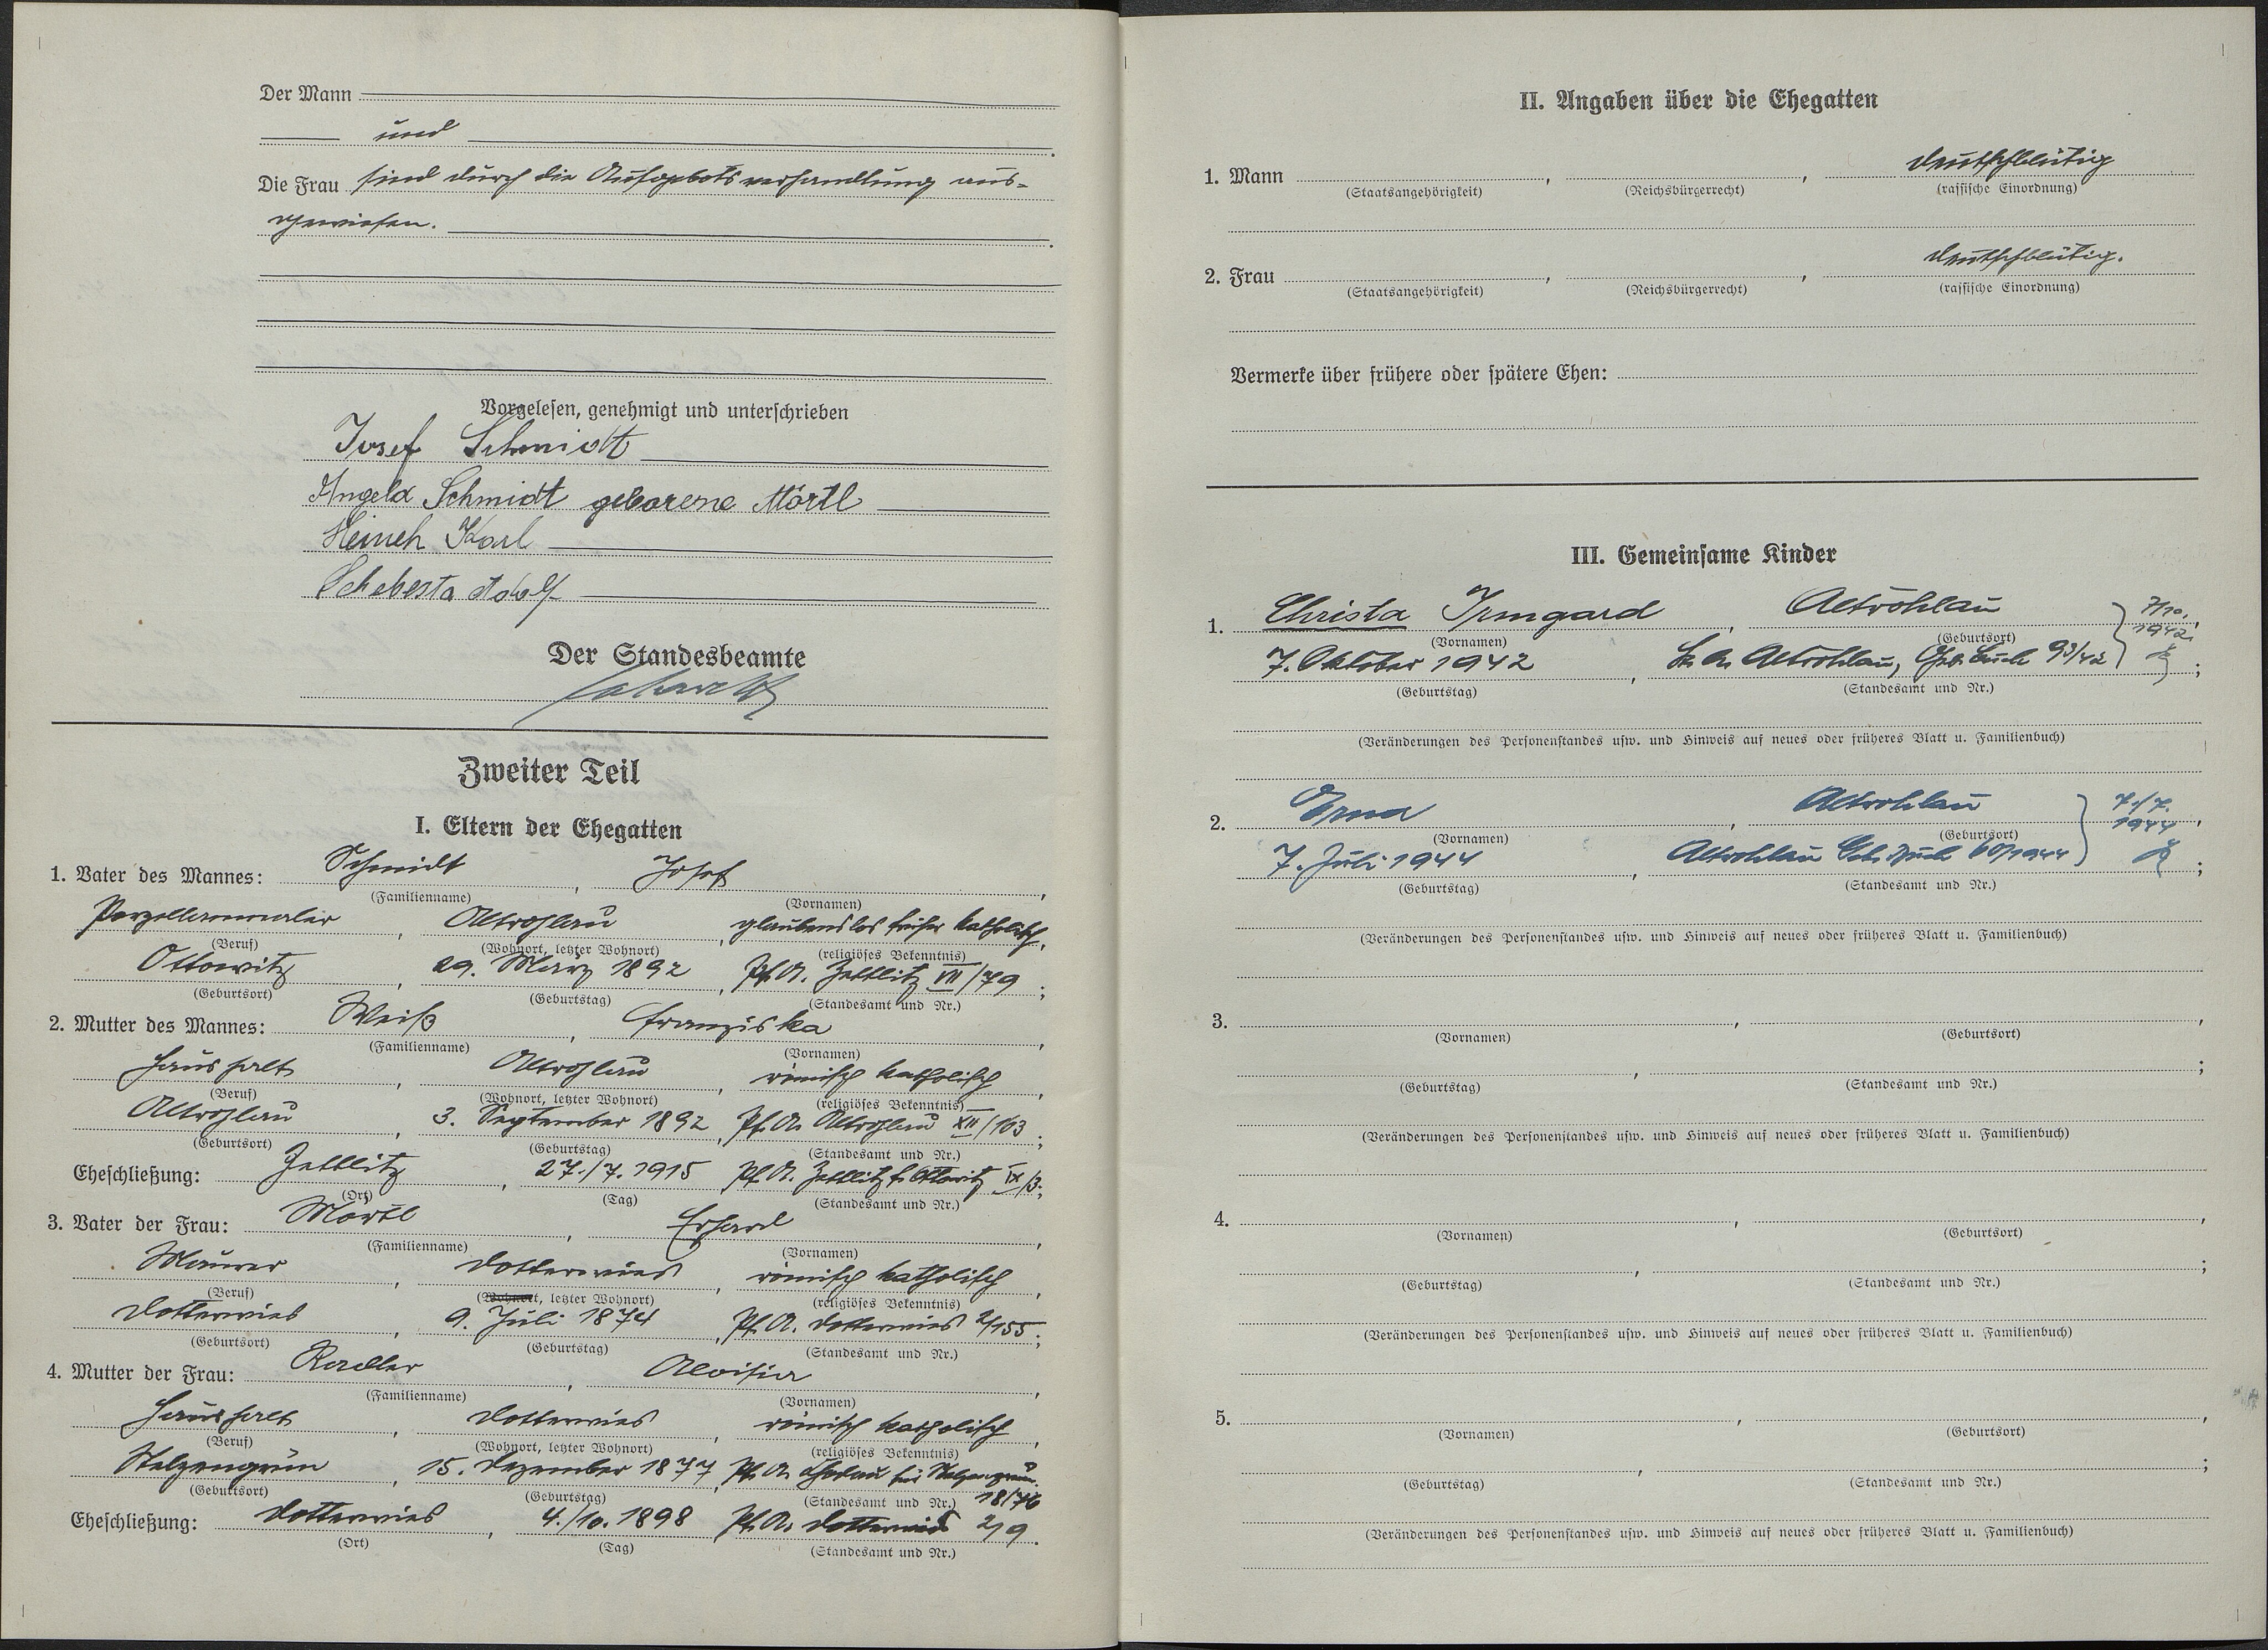 Der Mann
und
Die Frau sind durch die Aufgebotsverhandlung aus-
gewiesen.
Vorgelesen, genehmigt und unterschrieben
Josef Schmidt
Angela Schmidt geborene Mörtl
Heinch Karl
Schebesta Adolf
Der Standesbeamte
Zweiter Teil
I. Eltern der Ehegatten
1. Vater des Mannes: Schmidt, Josef,
(Familienname) (Vornamen)
Porzellanmaler, Altrohlau, glaubenslos früher katholisch,
(Beruf) (Wohnort, letzter Wohnort) (religiöses Bekenntnis)
Ottowitz, 29. März 1892, Pf.A. Zettlitz VII/79;
(Geburtsort) (Geburtstag) (Standesamt und Nr.)
2. Mutter des Mannes: Weiß, Franziska,
(Familienname) (Vornamen)
Haushalt, Altrohlau, römisch katholisch,
(Beruf) (Wohnort, letzter Wohnort) (religiöses Bekenntnis)
Altrohlau, 3. September 1892, Pf.A. Altrohlau XII/103;
(Geburtsort) (Geburtstag) (Standesamt und Nr.)
Eheschließung: Zettlitz, 27./7. 1915 Pf.A. Zettlitz f. Ottowitz IX/3;
(Ort) (Tag) (Standesamt und Nr.)
3. Vater der Frau: Mörtl, Erhard,
(Familienname) (Vornamen)
Maurer, Dotterwies, römisch katholisch,
(Beruf) (Wohnort, letzter Wohnort) (religiöses Bekenntnis)
Dotterwies, 9. Juli 1874, Pf.A. Dotterwies 2/155;
(Geburtsort) (Geburtstag) (Standesamt und Nr.)
4. Mutter der Frau: Radler, Aloisia,
(Familienname) (Vornamen)
Haushalt, Dotterwies, römisch katholisch,
(Beruf) (Wohnort, letzter Wohnort) (religiöses Bekenntnis)
Stelzengrün, 15. Dezember 1877, Pf.A. Chodau für Stelzengrün
(Geburtsort) (Geburtstag) (Standesamt und Nr.) 18/76
Eheschließung: Dotterwies, 4./10. 1898 Pf.A. Dotterwies 2/9.
(Ort) (Tag) (Standesamt und Nr.)
II. Angaben über die Ehegatten
1. Mann , , deutschblütig
(Staatsangehörigkeit) (Reichsbürgerrecht) (rassische Einordnung)
2. Frau , , deutschblütig.
(Staatsangehörigkeit) (Reichsbürgerrecht) (rassische Einordnung)
Vermerke über frühere oder spätere Ehen:
III. Gemeinsame Kinder
1. Christa Irmgard, Altrohlau 7/10.
(Vornamen) (Geburtsort) 1942.
7. Oktober 1942, St.A. Altrohlau, Geb. Buch 93/42;
(Geburtstag) (Standesamt und Nr.)
(Veränderungen des Personenstandes usw. und Hinweis auf neues oder früheres Blatt u. Familienbuch)
2. Erna, Altrohlau 7./7.
(Vornamen) (Geburtsort) 1944
7. Juli 1944, Altrohlau Geb. Buch 60/1944;
(Geburtstag) (Standesamt und Nr.)
(Veränderungen des Personenstandes usw. und Hinweis auf neues oder früheres Blatt u. Familienbuch)
3. , ,
(Vornamen) (Geburtsort)
, ;
(Geburtstag) (Standesamt und Nr.)
(Veränderungen des Personenstandes usw. und Hinweis auf neues oder früheres Blatt u. Familienbuch)
4. , ,
(Vornamen) (Geburtsort)
, ;
(Geburtstag) (Standesamt und Nr.)
(Veränderungen des Personenstandes usw. und Hinweis auf neues oder früheres Blatt u. Familienbuch)
5. , ,
(Vornamen) (Geburtsort)
, ;
(Geburtstag) (Standesamt und Nr.)
(Veränderungen des Personenstandes usw. und Hinweis auf neues oder früheres Blatt u. Familienbuch)